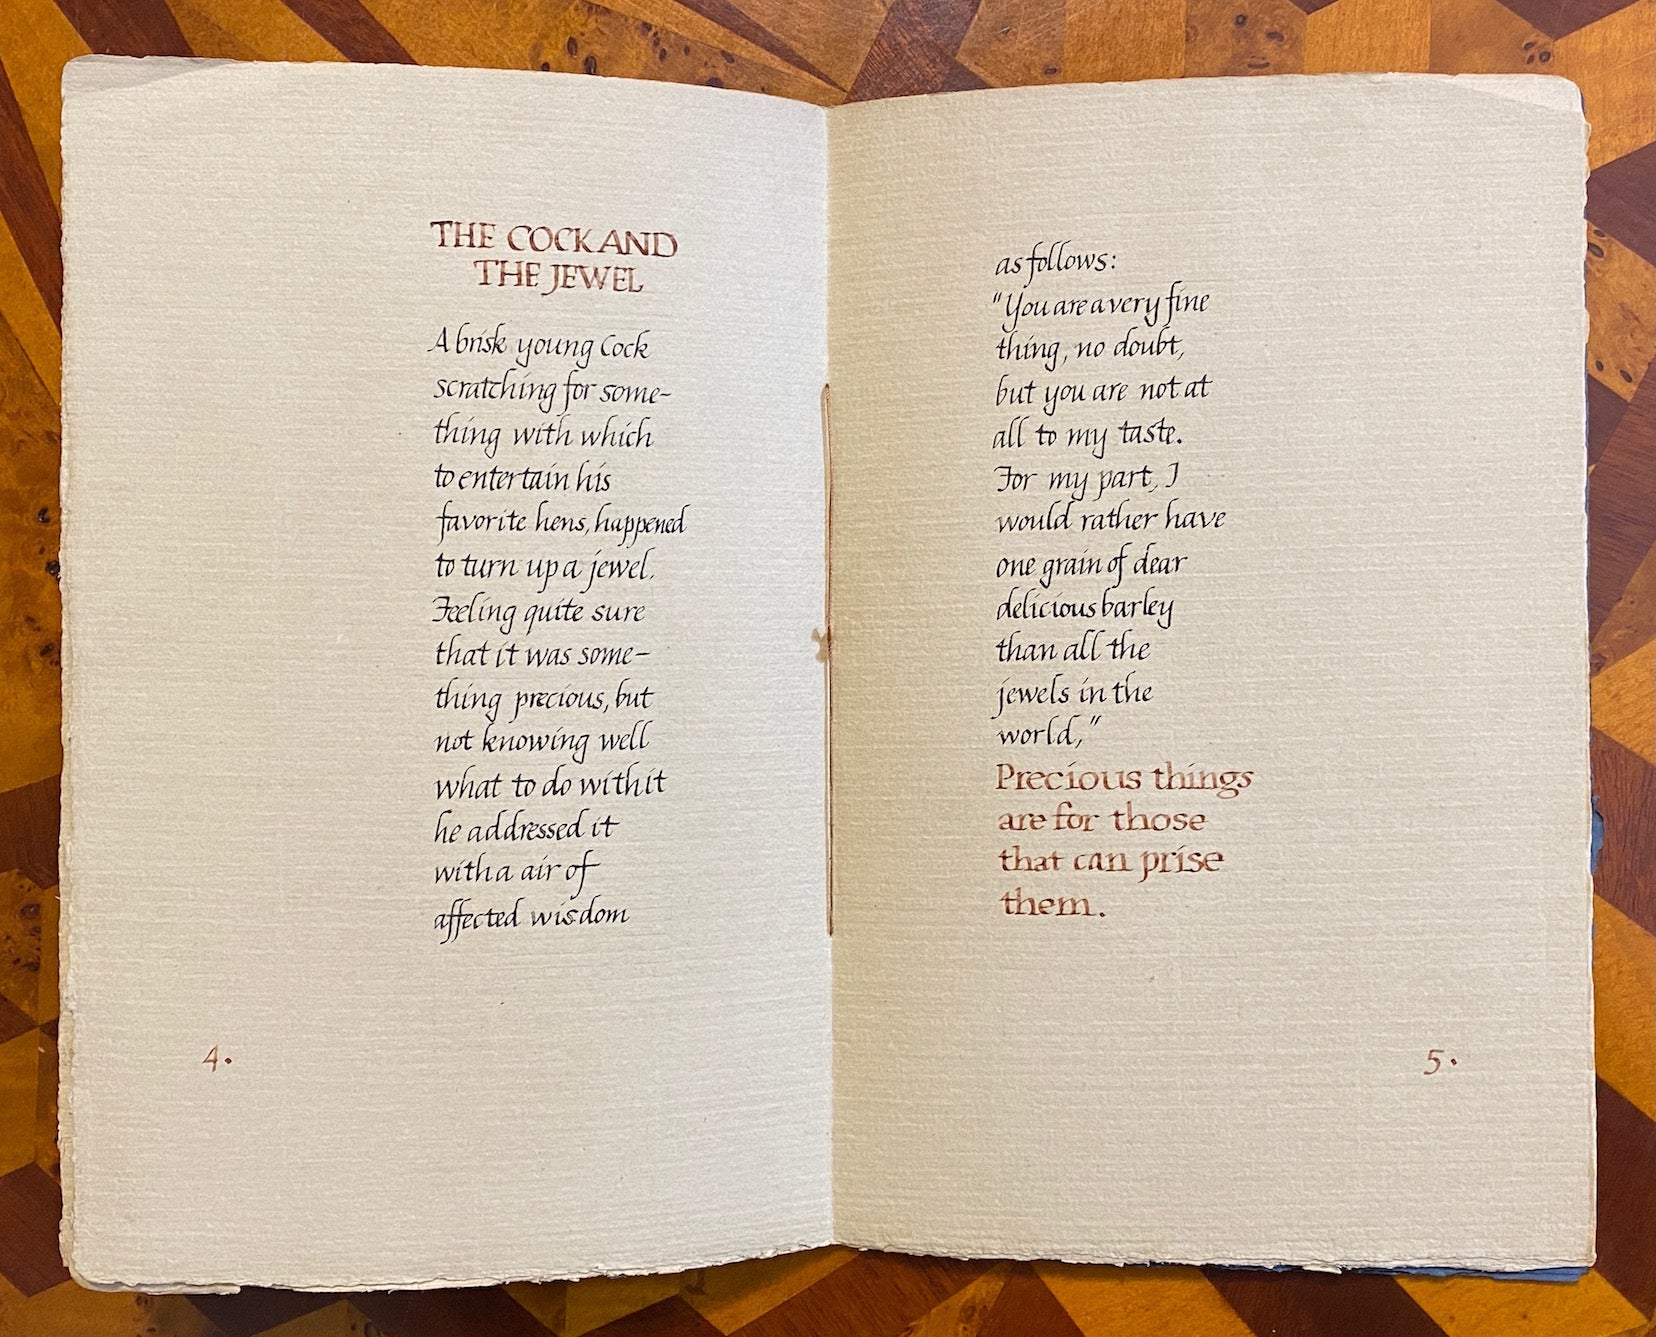 THE COCK AND
THE JEWEL
A brisk young Cock
scratching for some-
thing with which
to entertain his
favorite hens, happened
to turn up a jewel.
Feeling quite sure
that it was some-
thing precious, but
not knowing well
what to do with it
he addressed it
with a air of
affected wisdom
4.
as follows:
"You are a very fine
thing, no doubt,
but you are not at
all to my taste.
For my part, I
would rather have
one grain of dear
delicious barley
than all the
jewels in the
world,"
Precious things
are for those
that can prise
them.
5.